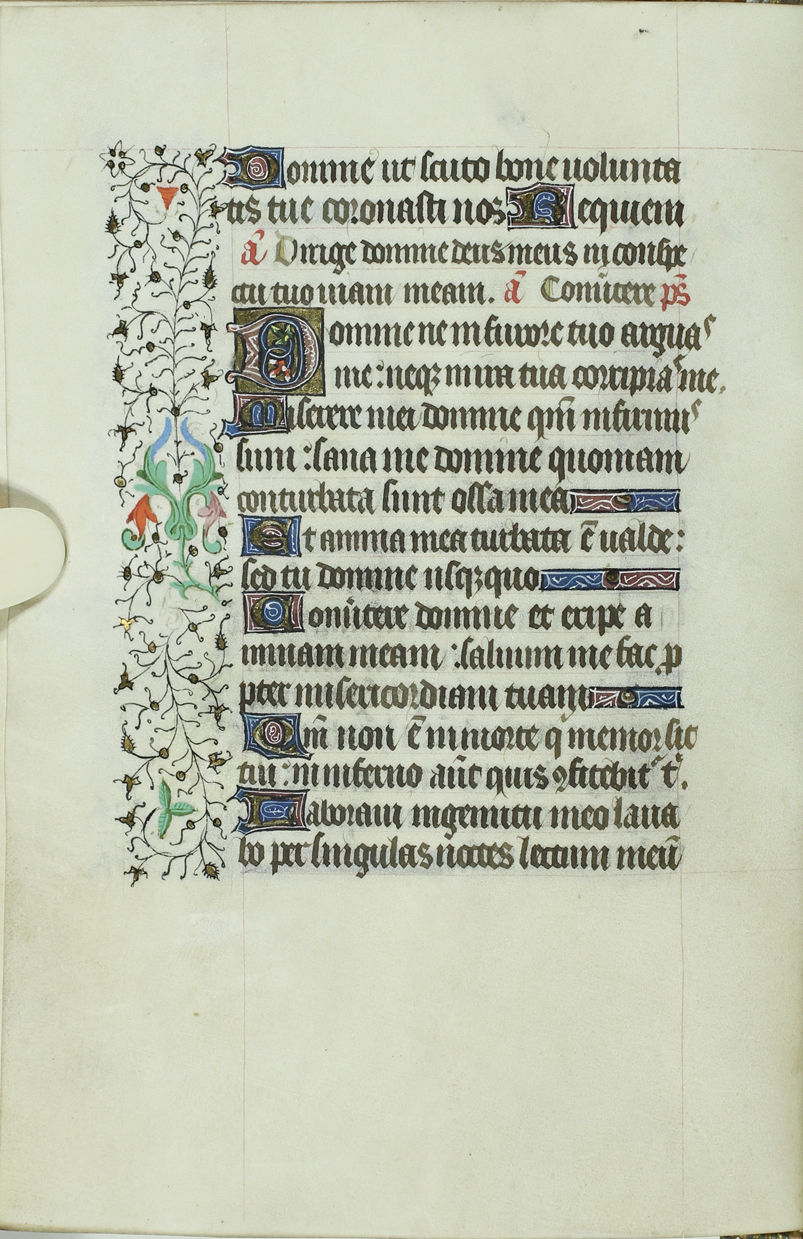 Domine ut scuto bone uolunta
tis tue coronasti nos Requiem
a̅ Dirige domine deus meus in conspe
ctu tuo uiam meam. a̅ Conu̅tere ps̅
Domine ne in furore tuo arguas
me : neqꝫ in ira tua corripias me.
Miserere mei domine qm̅ infirmus
sum : sana me domine quoniam
conturbata sunt ossa mea
Et anima mea turbata e̅ ualde :
sed tu domine usqꝫquo
Conu̅tere domine et eripe a
nimam meam : saluum me fac ꝓ
pter misericordiam tuam
Qm̅ non e̅ in morte q̇ memor sit
tui : in inferno aut̅ quis ꝯfitebit᷑ t᷑.
Laboraui in gemitu meo laua
bo per singulas noctes lectum meu̅